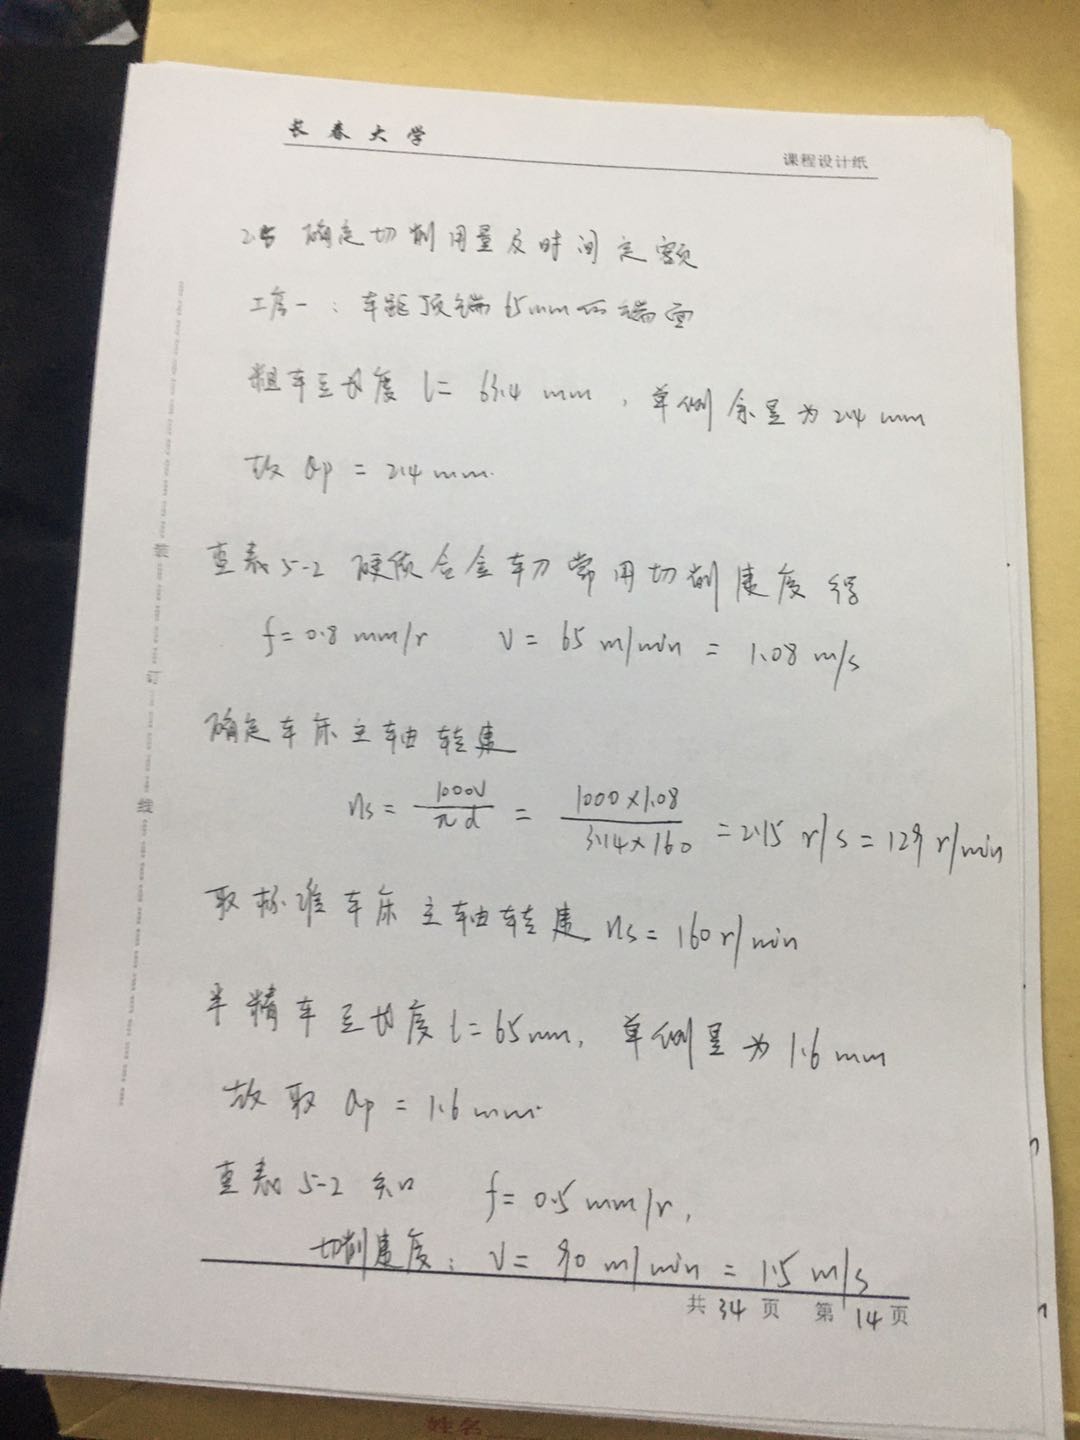 长春大学
课程设计纸
2.5 确定切削用量及时间定额
工序一：车距顶端65mm的端面
粗车至长度 l= 63.4 mm，单侧余量为2.4 mm
故 ap = 2.4 mm.
查表5-2 硬质合金车刀常用切削速度得
f=0.8 mm/r V= 65 m/min = 1.08 m/s
确定车床主轴转速
ns= 1000V/πd = 1000×1.08/3.14×160 =2.15 r/s=129 r/min
取标准车床主轴转速 ns=160r/min
半精车至长度 l=65mm, 单侧量为1.6mm
故取 ap=1.6mm.
查表5-2知 f=0.5mm/r,
切削速度：V= 90 m/min = 1.5 m/s
共34页 第14页
装
订
线
姓名